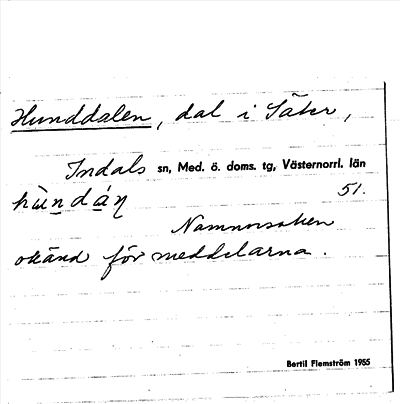 Hunddalen, dal i Säter,
Indals sn, Med. ö. doms. tg, Västernorrl. län
hùndáṇ 51.
Namnorsaken
okänd för meddelarna.
Bertil Flemström 1955